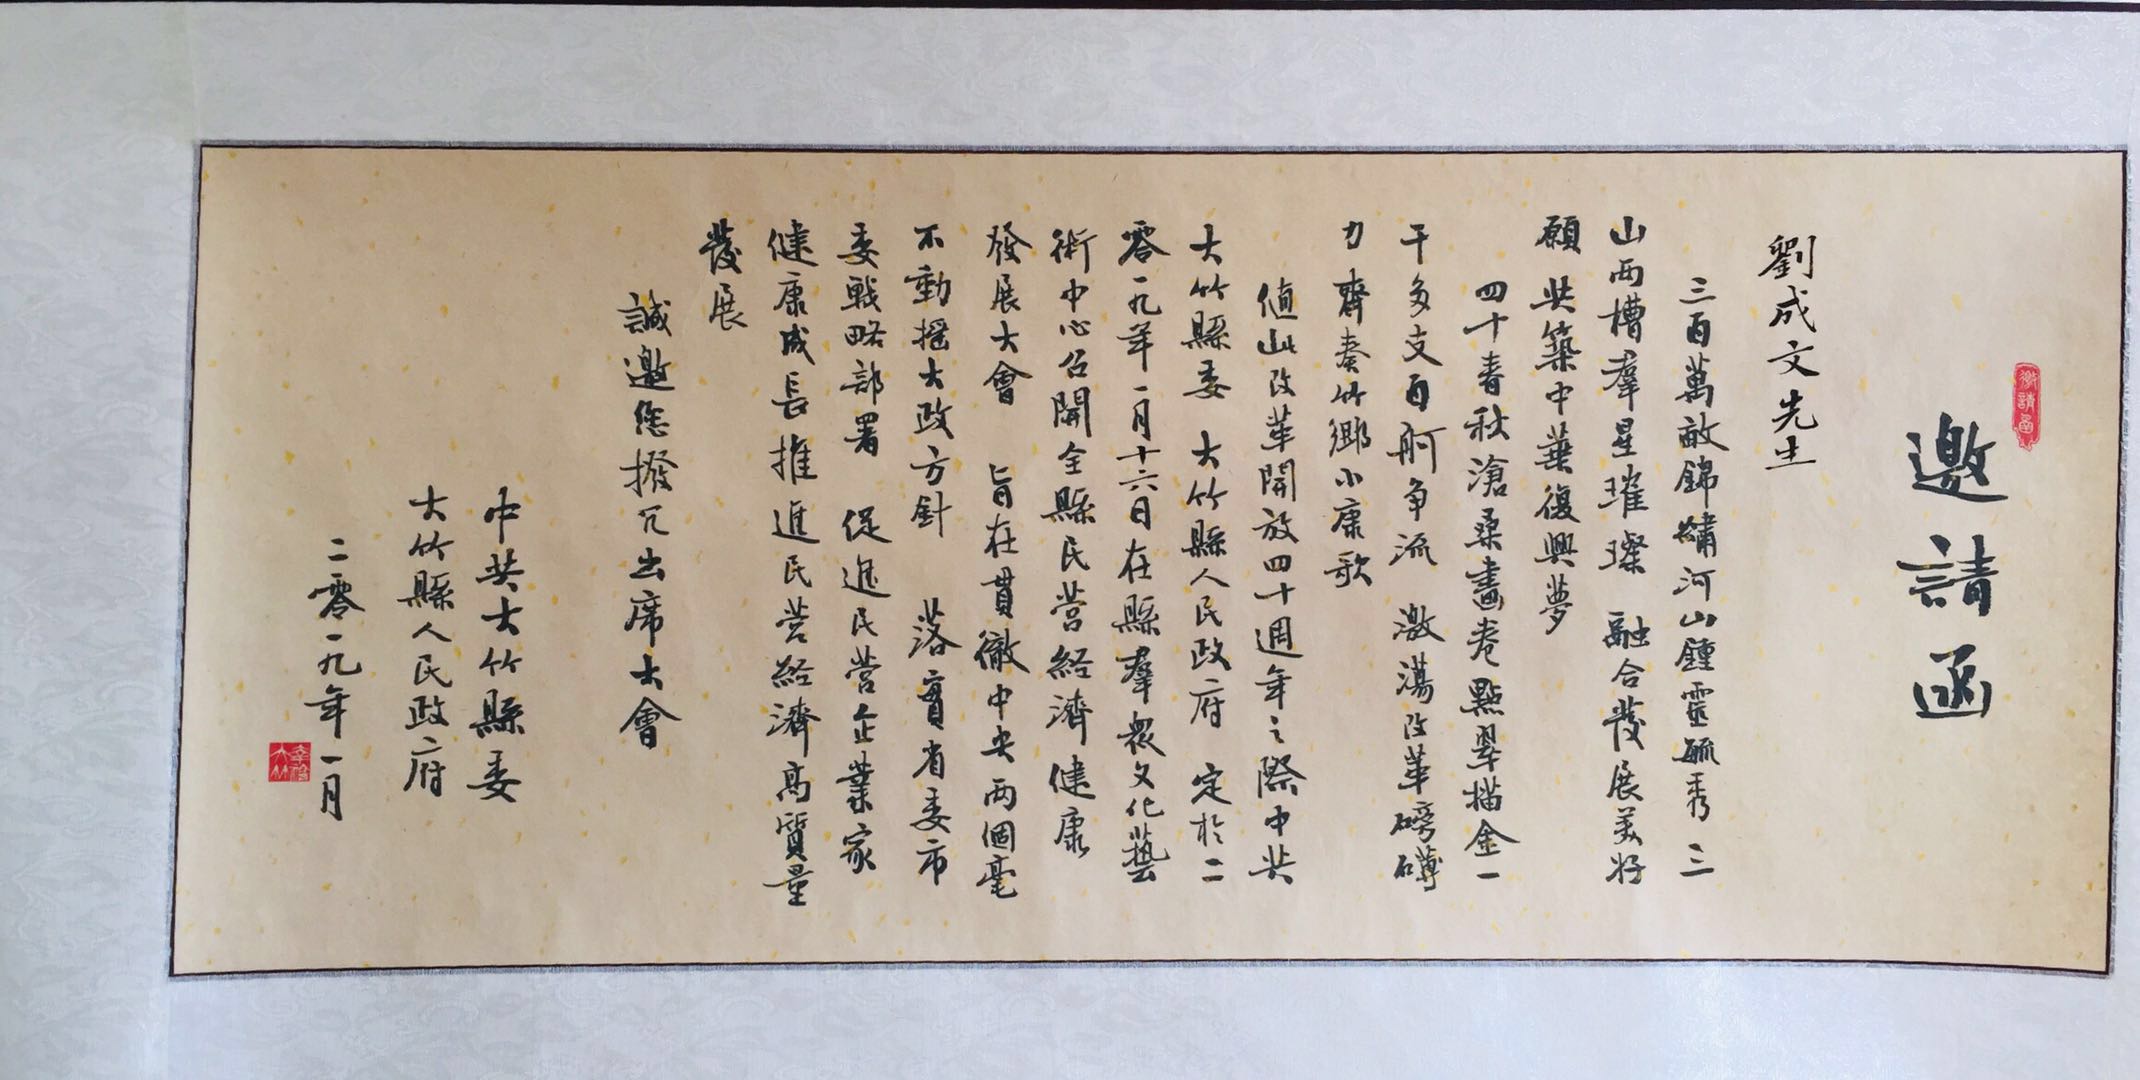 邀請函
邀請函
劉成文先生
三百萬畝錦繡河山鍾靈毓秀 三
山兩槽羣星璀璨 融合發展美好
願 共築中華復興夢
四十春秋滄桑畫卷點翠描金一
千多支百舸争流 激蕩改革磅礴
力 齊奏竹鄉小康歌
值此改革開放四十週年之際中共
大竹縣委 大竹縣人民政府 定於二
零一九年一月十六日在縣羣衆文化藝
術中心召開全縣民營經濟健康
發展大會 旨在貫徹中央兩個毫
不動摇大政方針 落實省委市
委戰略部署 促進民營企業家
健康成長推進民營經濟高質量
發展
誠邀您撥冗出席大會
中共大竹縣委
大竹縣人民政府
二零一九年一月